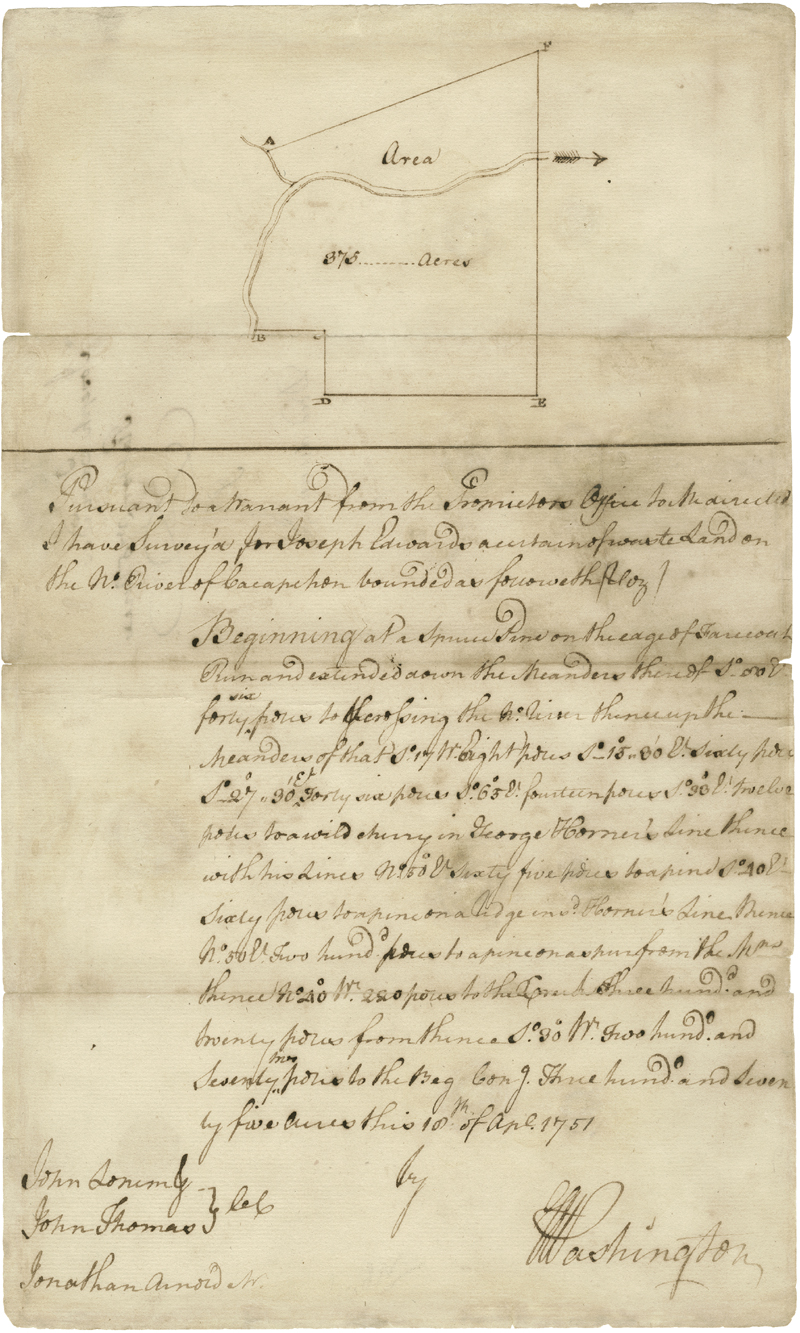 F
A
Area
375 Acres
B
C
D
E
Pursuant to a Warrant from the Proprietors Office to Me directed
I have Survey'd for Joseph Edwards a certain of waste Land on
the No. River of Cacapehon bounded as followeth
Beginning at a Spruce Pine on the edge of
Run and extend'd down the Meanders there of So. 50 Et.
forty six poles to crossing the No. River thence up the
Meanders of that So. 17 Wt. Eight poles So. 15. 30 Et. Sixty poles
So. 27. 30 Et. Forty six poles So. 65 Et. fourteen poles So. 30 Et. twelve
poles to a wild cherry in George Horner's Line thence
with his Lines No. 50 Et. Sixty five poles to a pine So. 40 Et.
sixty poles to a pine on a Ridge in sd. Horner's Line thence
No. 50 Et. Two hund.d poles to a pine on a spur from the Mns
thence No. 40 Wt. 220 poles to the Creek Three hund.d and
twenty poles from thence So. 30 Wt. Two hund.d and
Seventy two poles to the Beg Con.g. Three hund.d and Seven
ty five Acres this 18th. of Apl. 1751
by
John
John Thomas } CC
Jonathan Arnold M.
GWashington